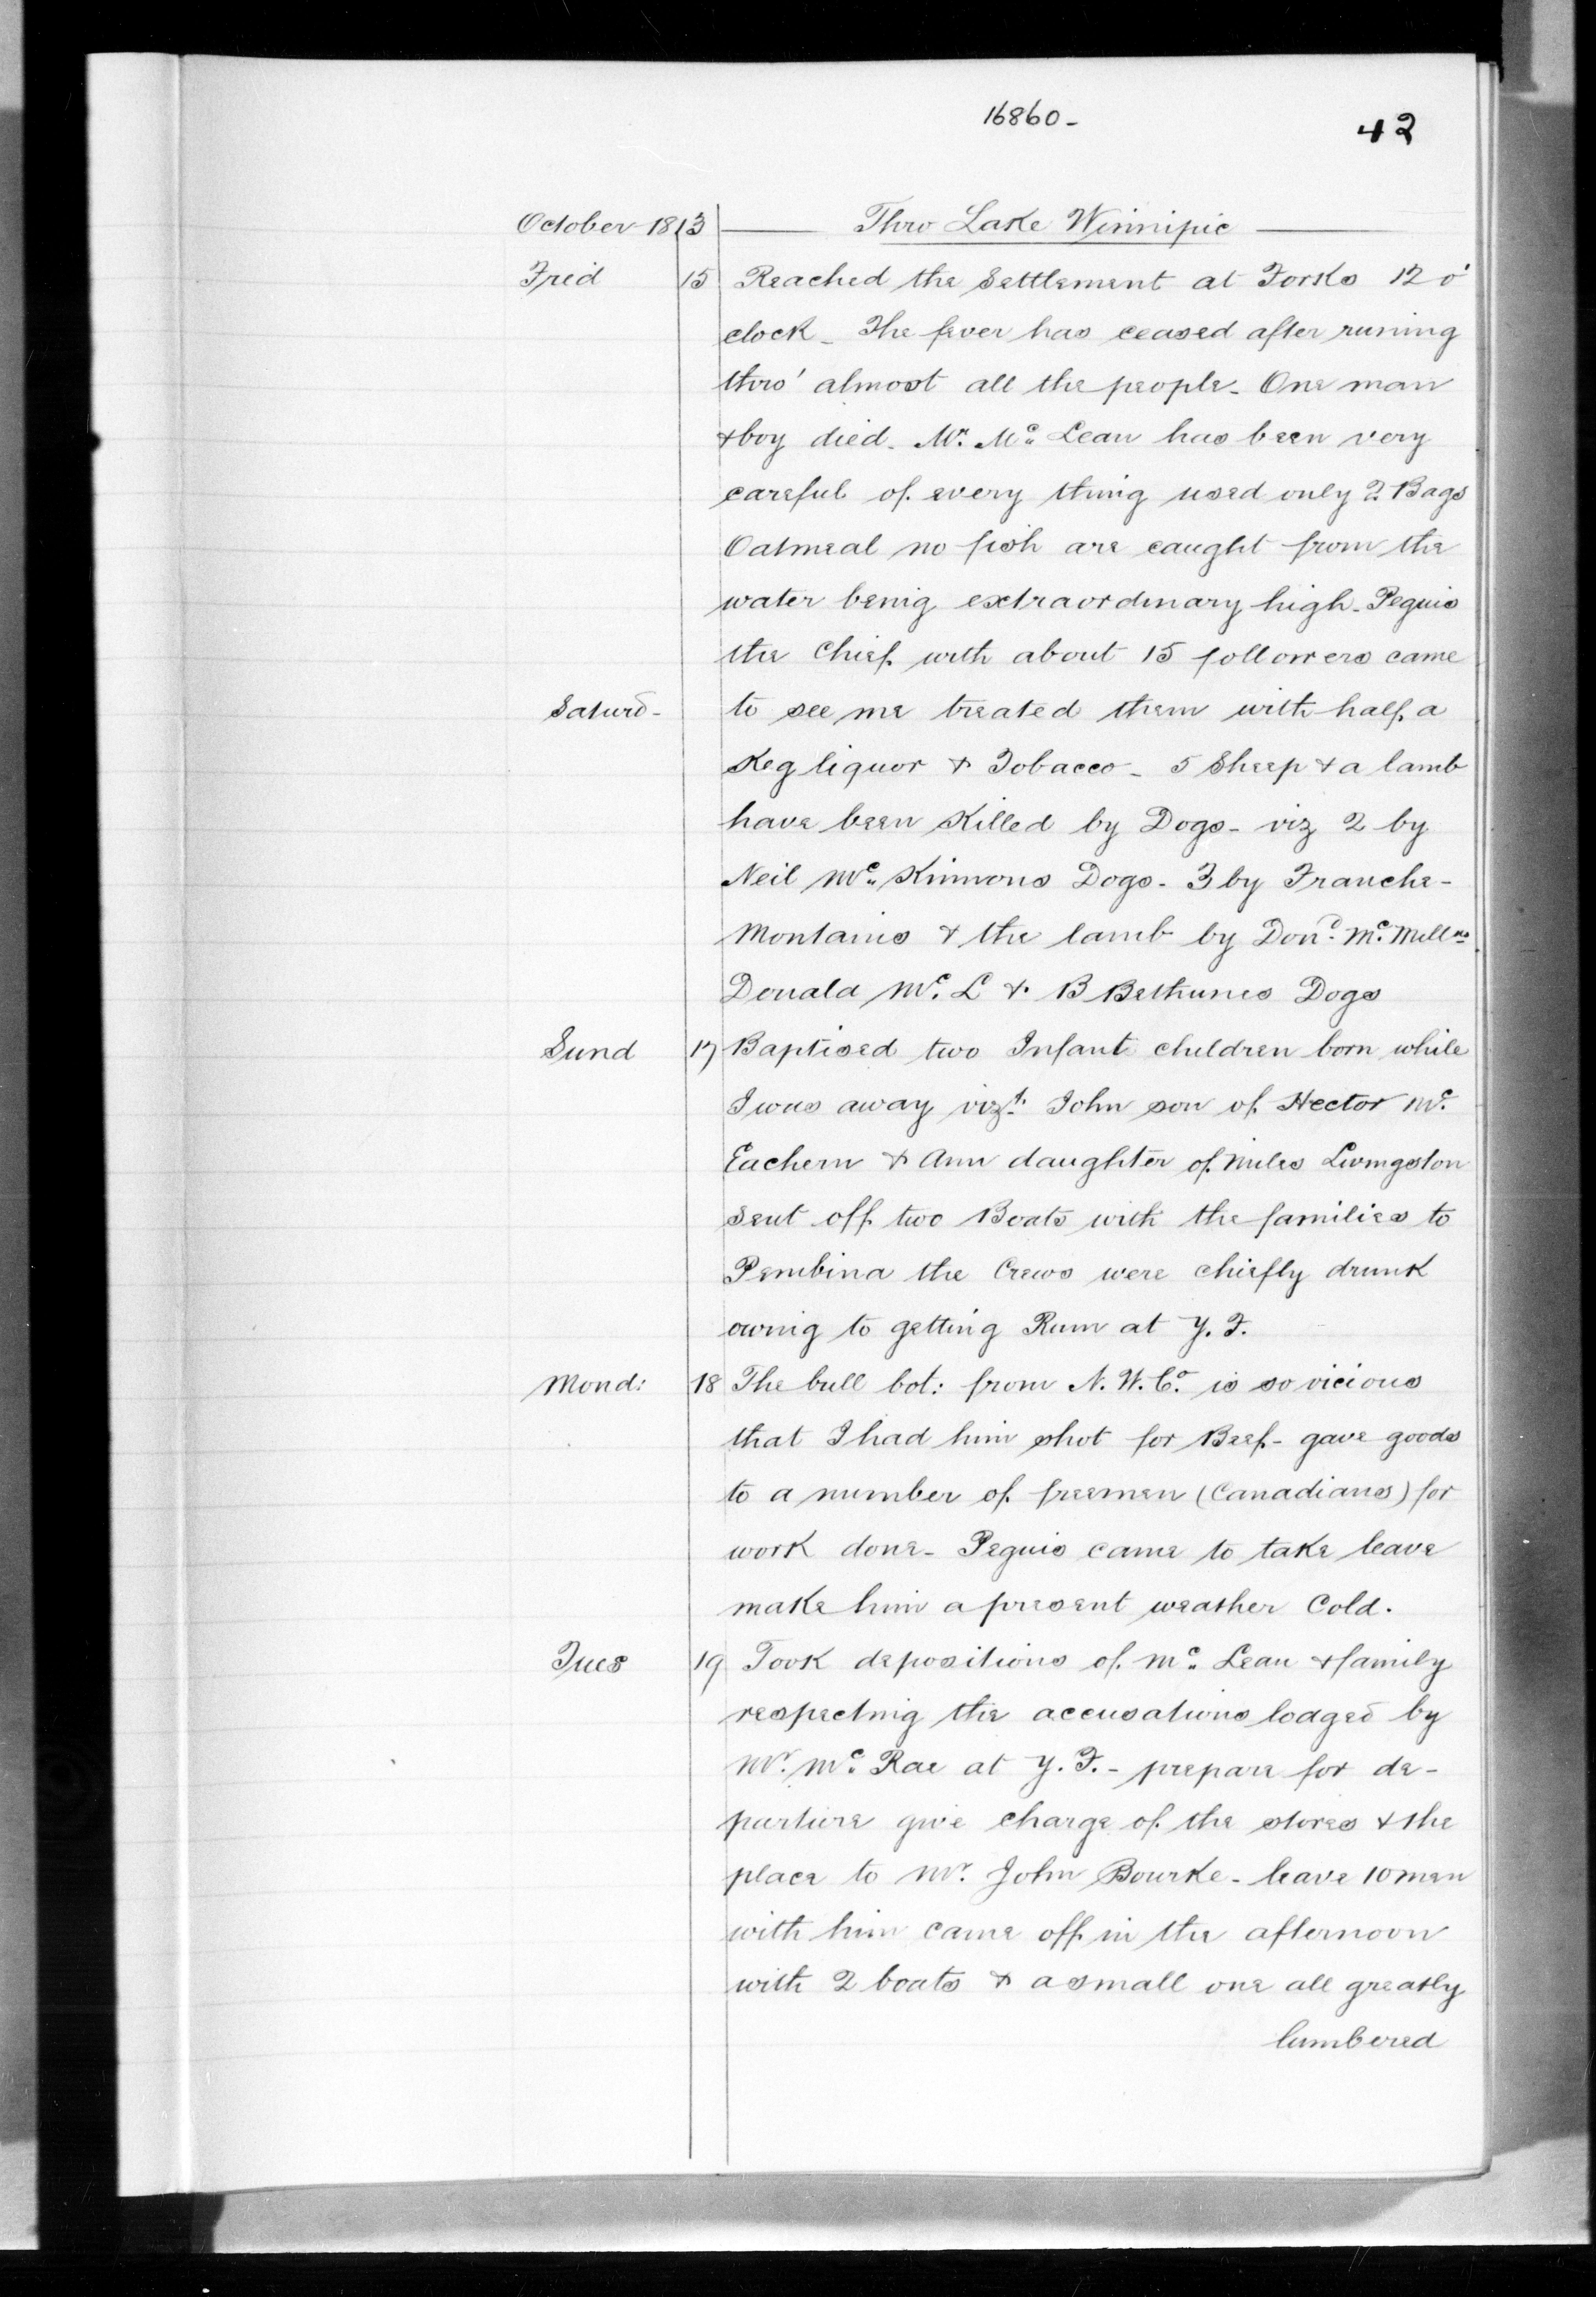 16860-
42
October 1813 Thro Lake Winnipic
Frid 15 Reached the Settlement at Forks 12 o'
clock - The fever has ceased after runing
thro' almost all the people - One man
& boy died. Mr. Mc. Lean has been very
careful of every thing used only 2 Bags
Oatmeal no fish are caught from the
water being extraordinary high - Peguis
the Chief with about 15 followers came
Saturd - to see me treated them with half a
Keg liquor & Tobacco - 5 Sheep & a lamb
have been Killed by Dogs - viz 2 by
Neil Mc. Kinnons Dogs - 3 by Franche-
Montains & the lamb by Dond. Mc. Mellns
Donald Mc. L & B Bethunes Dogs
Sund 17 Baptised two Infant children born while
I was away vizt. John son of Hector Mc.
Eachern & Ann daughter of Miles Livingston
sent off two Boats with the families to
Pembina the Crews were chiefly drunk
owing to getting Rum at Y. F.
Mond: 18 The bull bot: from N. W. Co. is so vicious
that I had him shot for Beef - gave goods
to a number of freemen (Canadians) for
work done - Peguis came to take leave
make him a present weather Cold.
Tues 19 Took depositions of Mc. Lean & family
respecting the accusations lodged by
Mr. Mc. Rae at Y. F. - prepare for de-
parture give charge of the stores & the
place to Mr. John Bourke - leave 10 men
with him came off in the afternoon
with 2 boats & a small one all greatly
lumbered